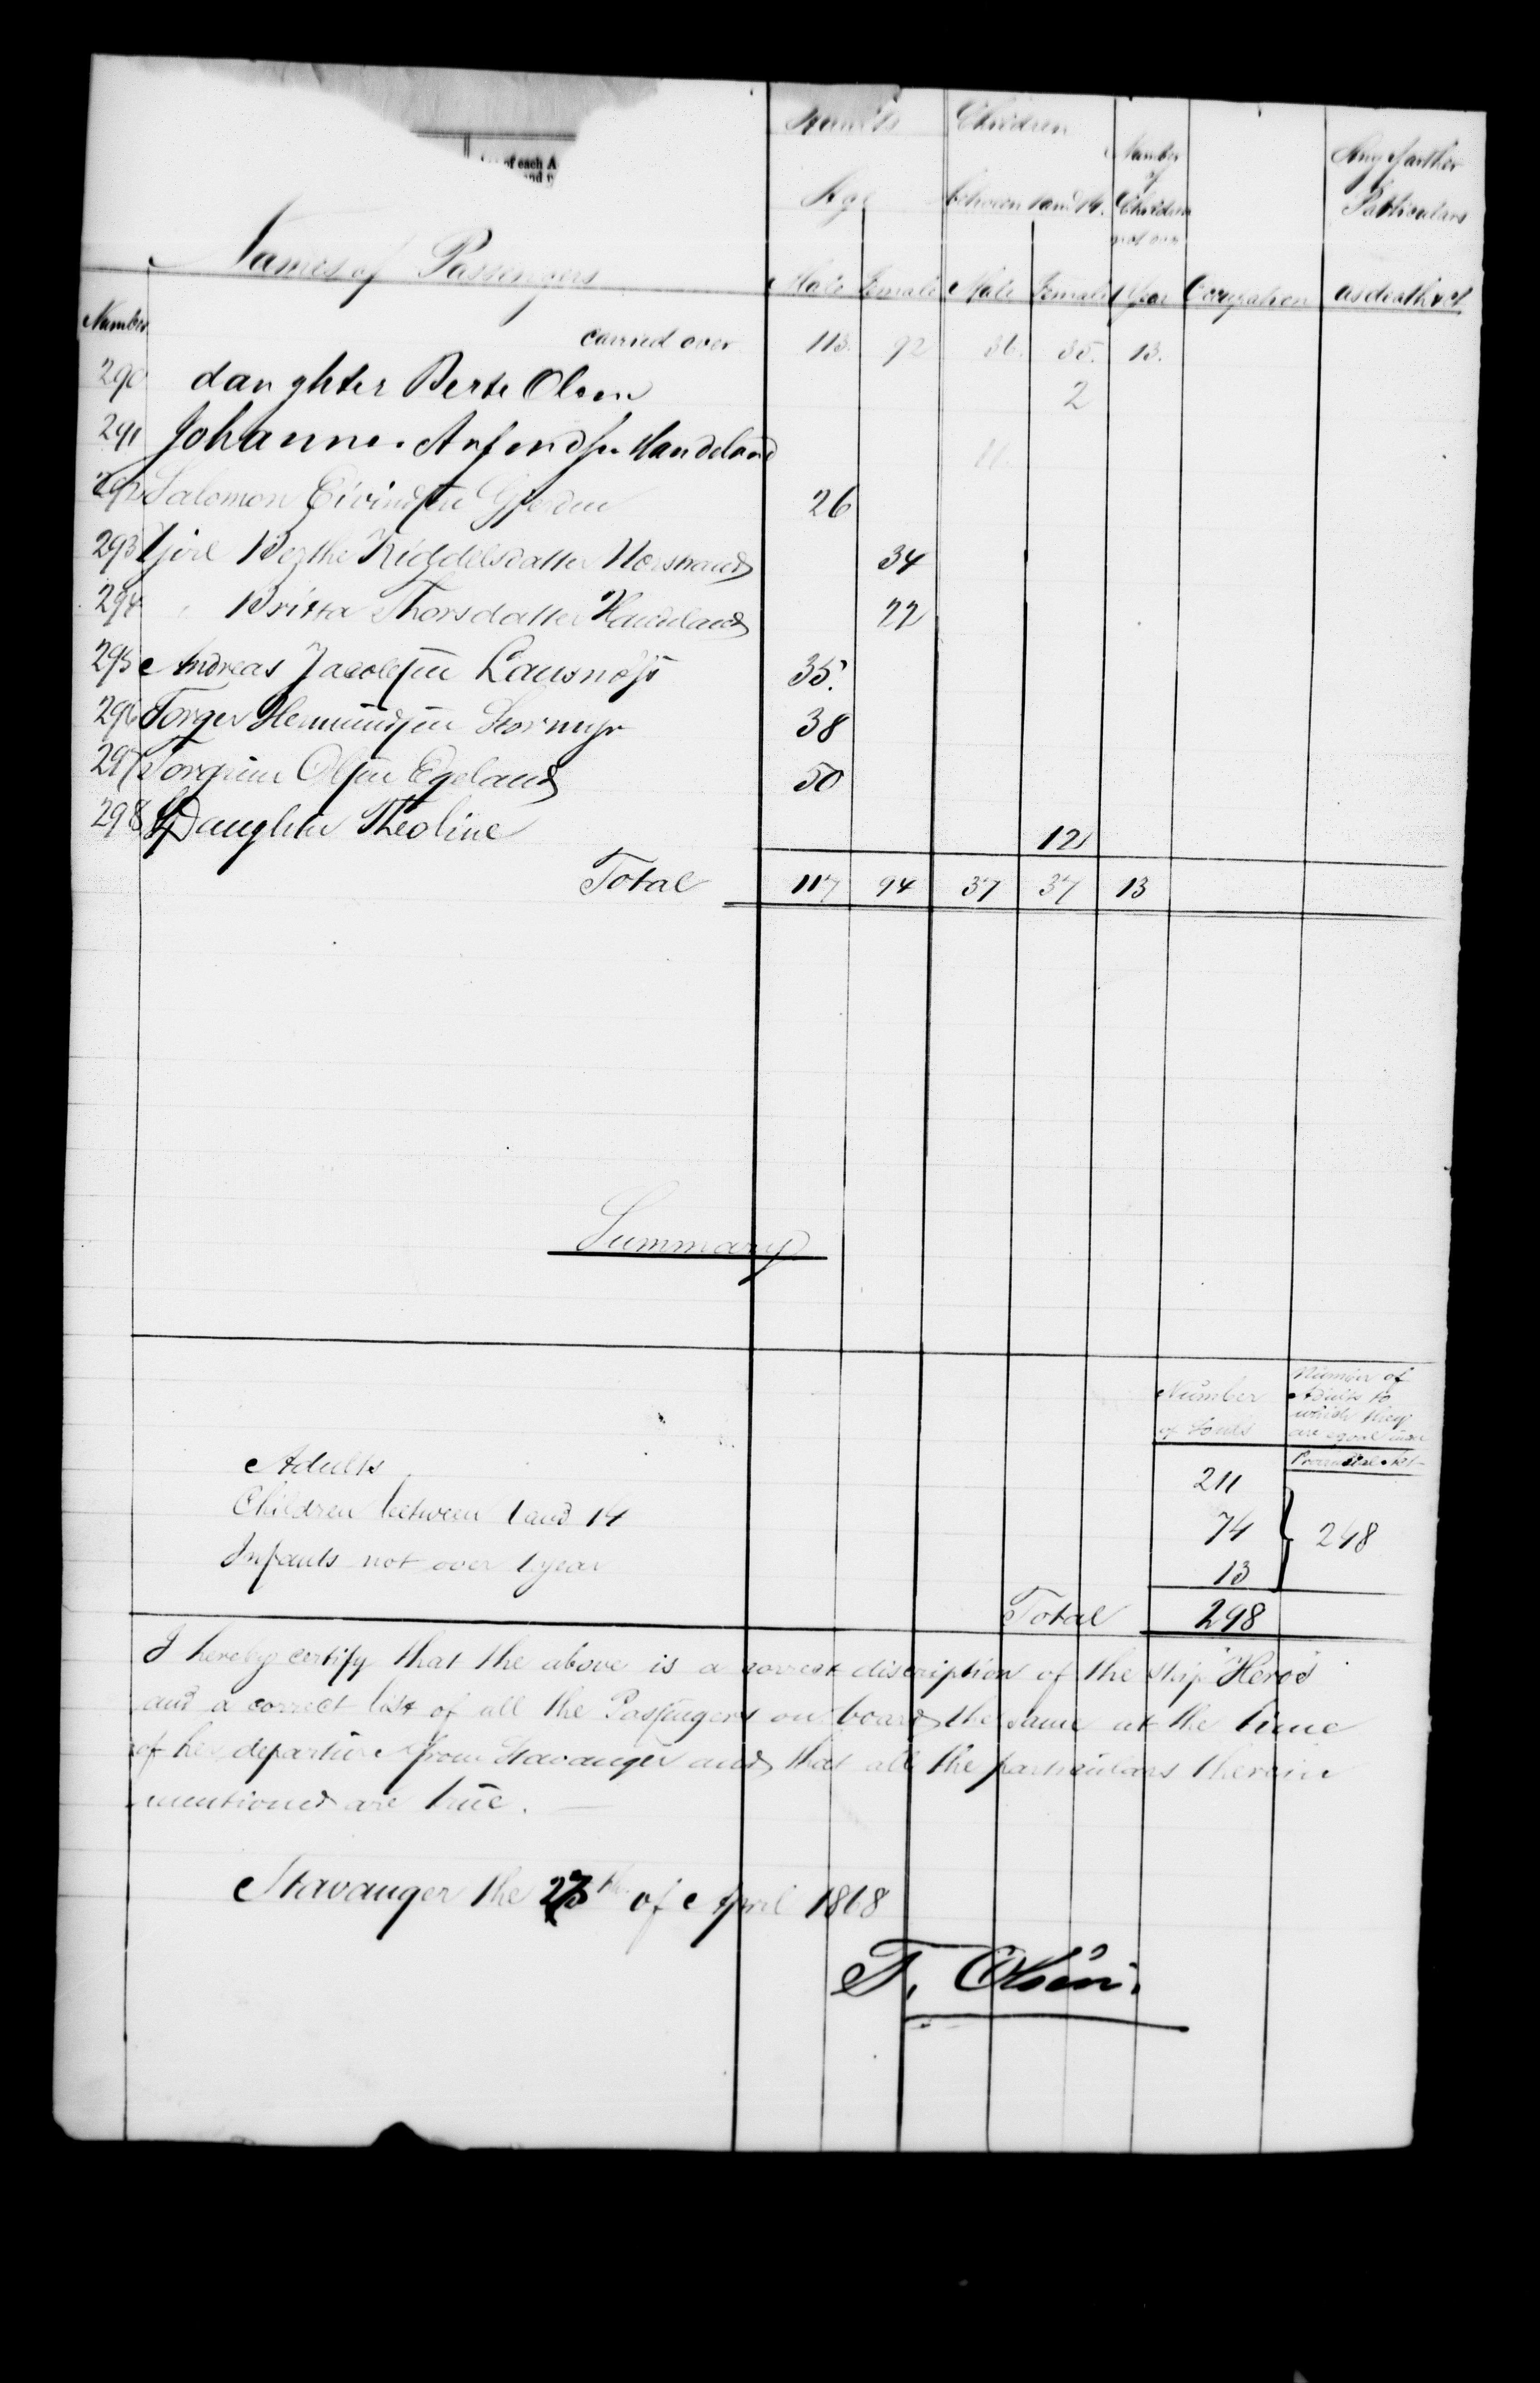 of each A
and
Adults Children Number of Children not over Any further Particulars
Age between 1 and 14.
Names of Passengers Male Female Male Female 1 Year Occupation as death &ct
Number
carried over 113. 92 36. 35. 13.
290 daughter Berte Olsen 2
291 Johannes Handeland 11.
292 Salomon Eivindsen 26
293 Girl Berthe 34
294 " Britta Thorsdatter Handeland 22
295 Andreas Jacobsen 35.
296 Torger 38
297 Torgrim Olsen Egeland 50
298 Daughter Theoline 12
Total 117 94 37 37 13
Summary
Number of Souls
Number of Adults to which they are equal under
Adults 211
Children between 1 and 14 74 } 248
Infants not over 1 year 13
Total 298
I hereby certify that the above is a correct discription of the ship "Heros"
and a correct list of all the Passengers on board the same at the time
of her departure from Stavanger and that all the particulars therein
mentioned are true. —
Stavanger the th of April 1868
T. Olsen.